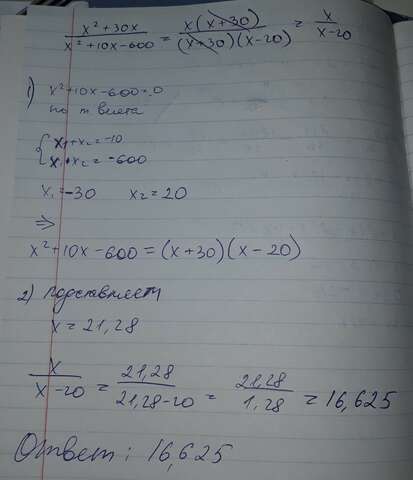 x² + 30x / x² + 10x - 600 = x(x+30) / (x+30)(x-20) = x / x-20
1) x² + 10x - 600 = 0
по т. Виета
{ x₁ + x₂ = -10
x₁ • x₂ = -600
x₁ = -30 x₂ = 20
⇒
x² + 10x - 600 = (x+30)(x-20)
2) Подставляем
x = 21,28
x / x-20 = 21,28 / 21,28-20 = 21,28 / 1,28 = 16,625
Ответ: 16,625